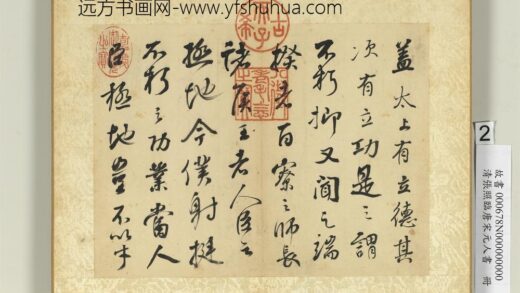 远方书画网- www.yfshuhua.com
盖太上有立德其
次有立功是之谓
不朽抑又闻之端
揆者百寮之师长
诸侯王者人臣之
极地今仆射挺
不朽之功业当人
臣极地岂不以才
2
故書 000678N000000000
清張照臨唐宋元人書 冊